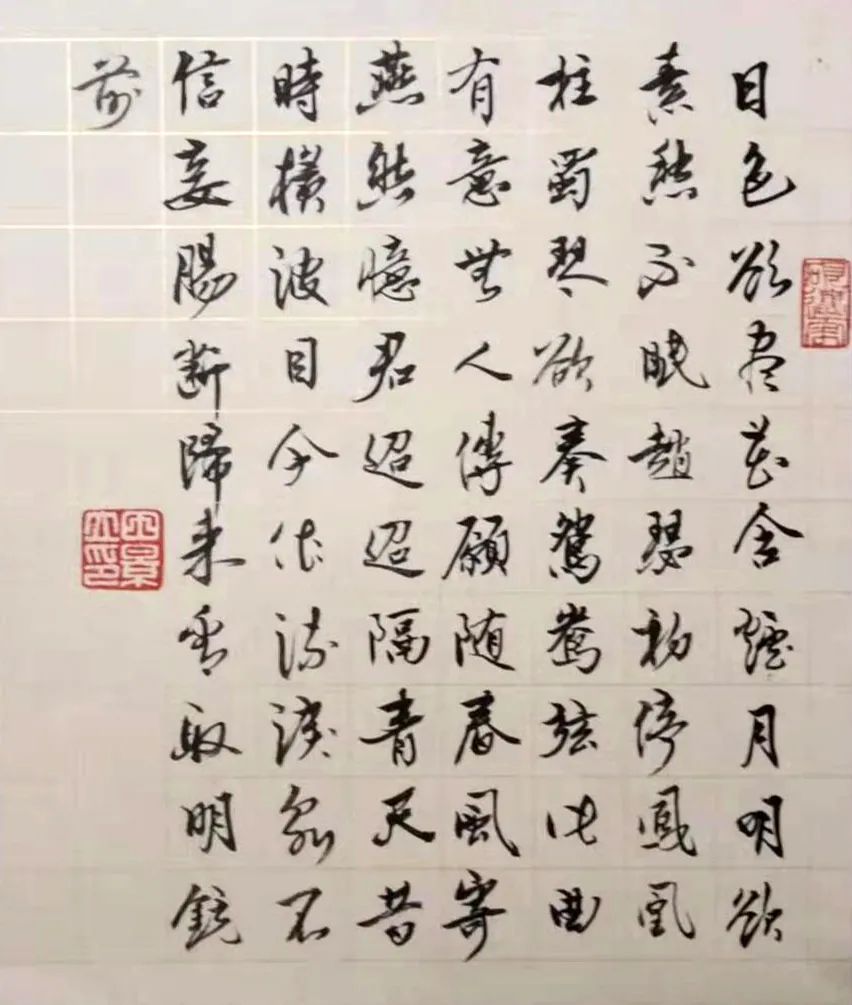 日色欲尽花含煙月明欲
素愁不眠趙瑟初停鳳凰
柱蜀琴欲奏鴛鴦弦此曲
有意無人傳願随春風寄
燕然憶君迢迢隔青天昔
時横波目今作流淚泉不
信妾腸断歸来看取明鏡
前